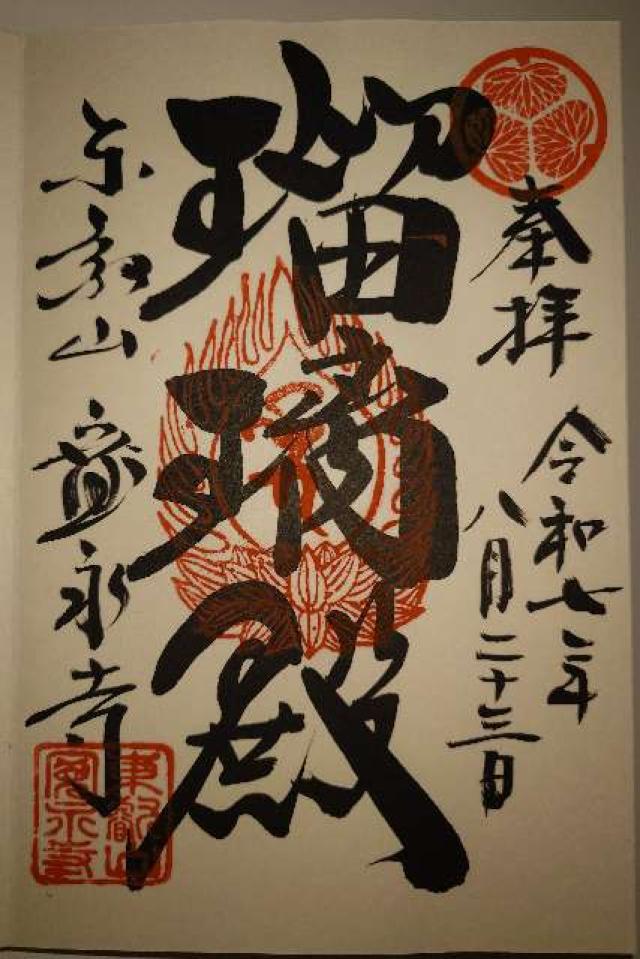 奉拝
令和七年
八月二十三日
瑠璃殿
東叡山 寛永寺
東叡山
寛永寺